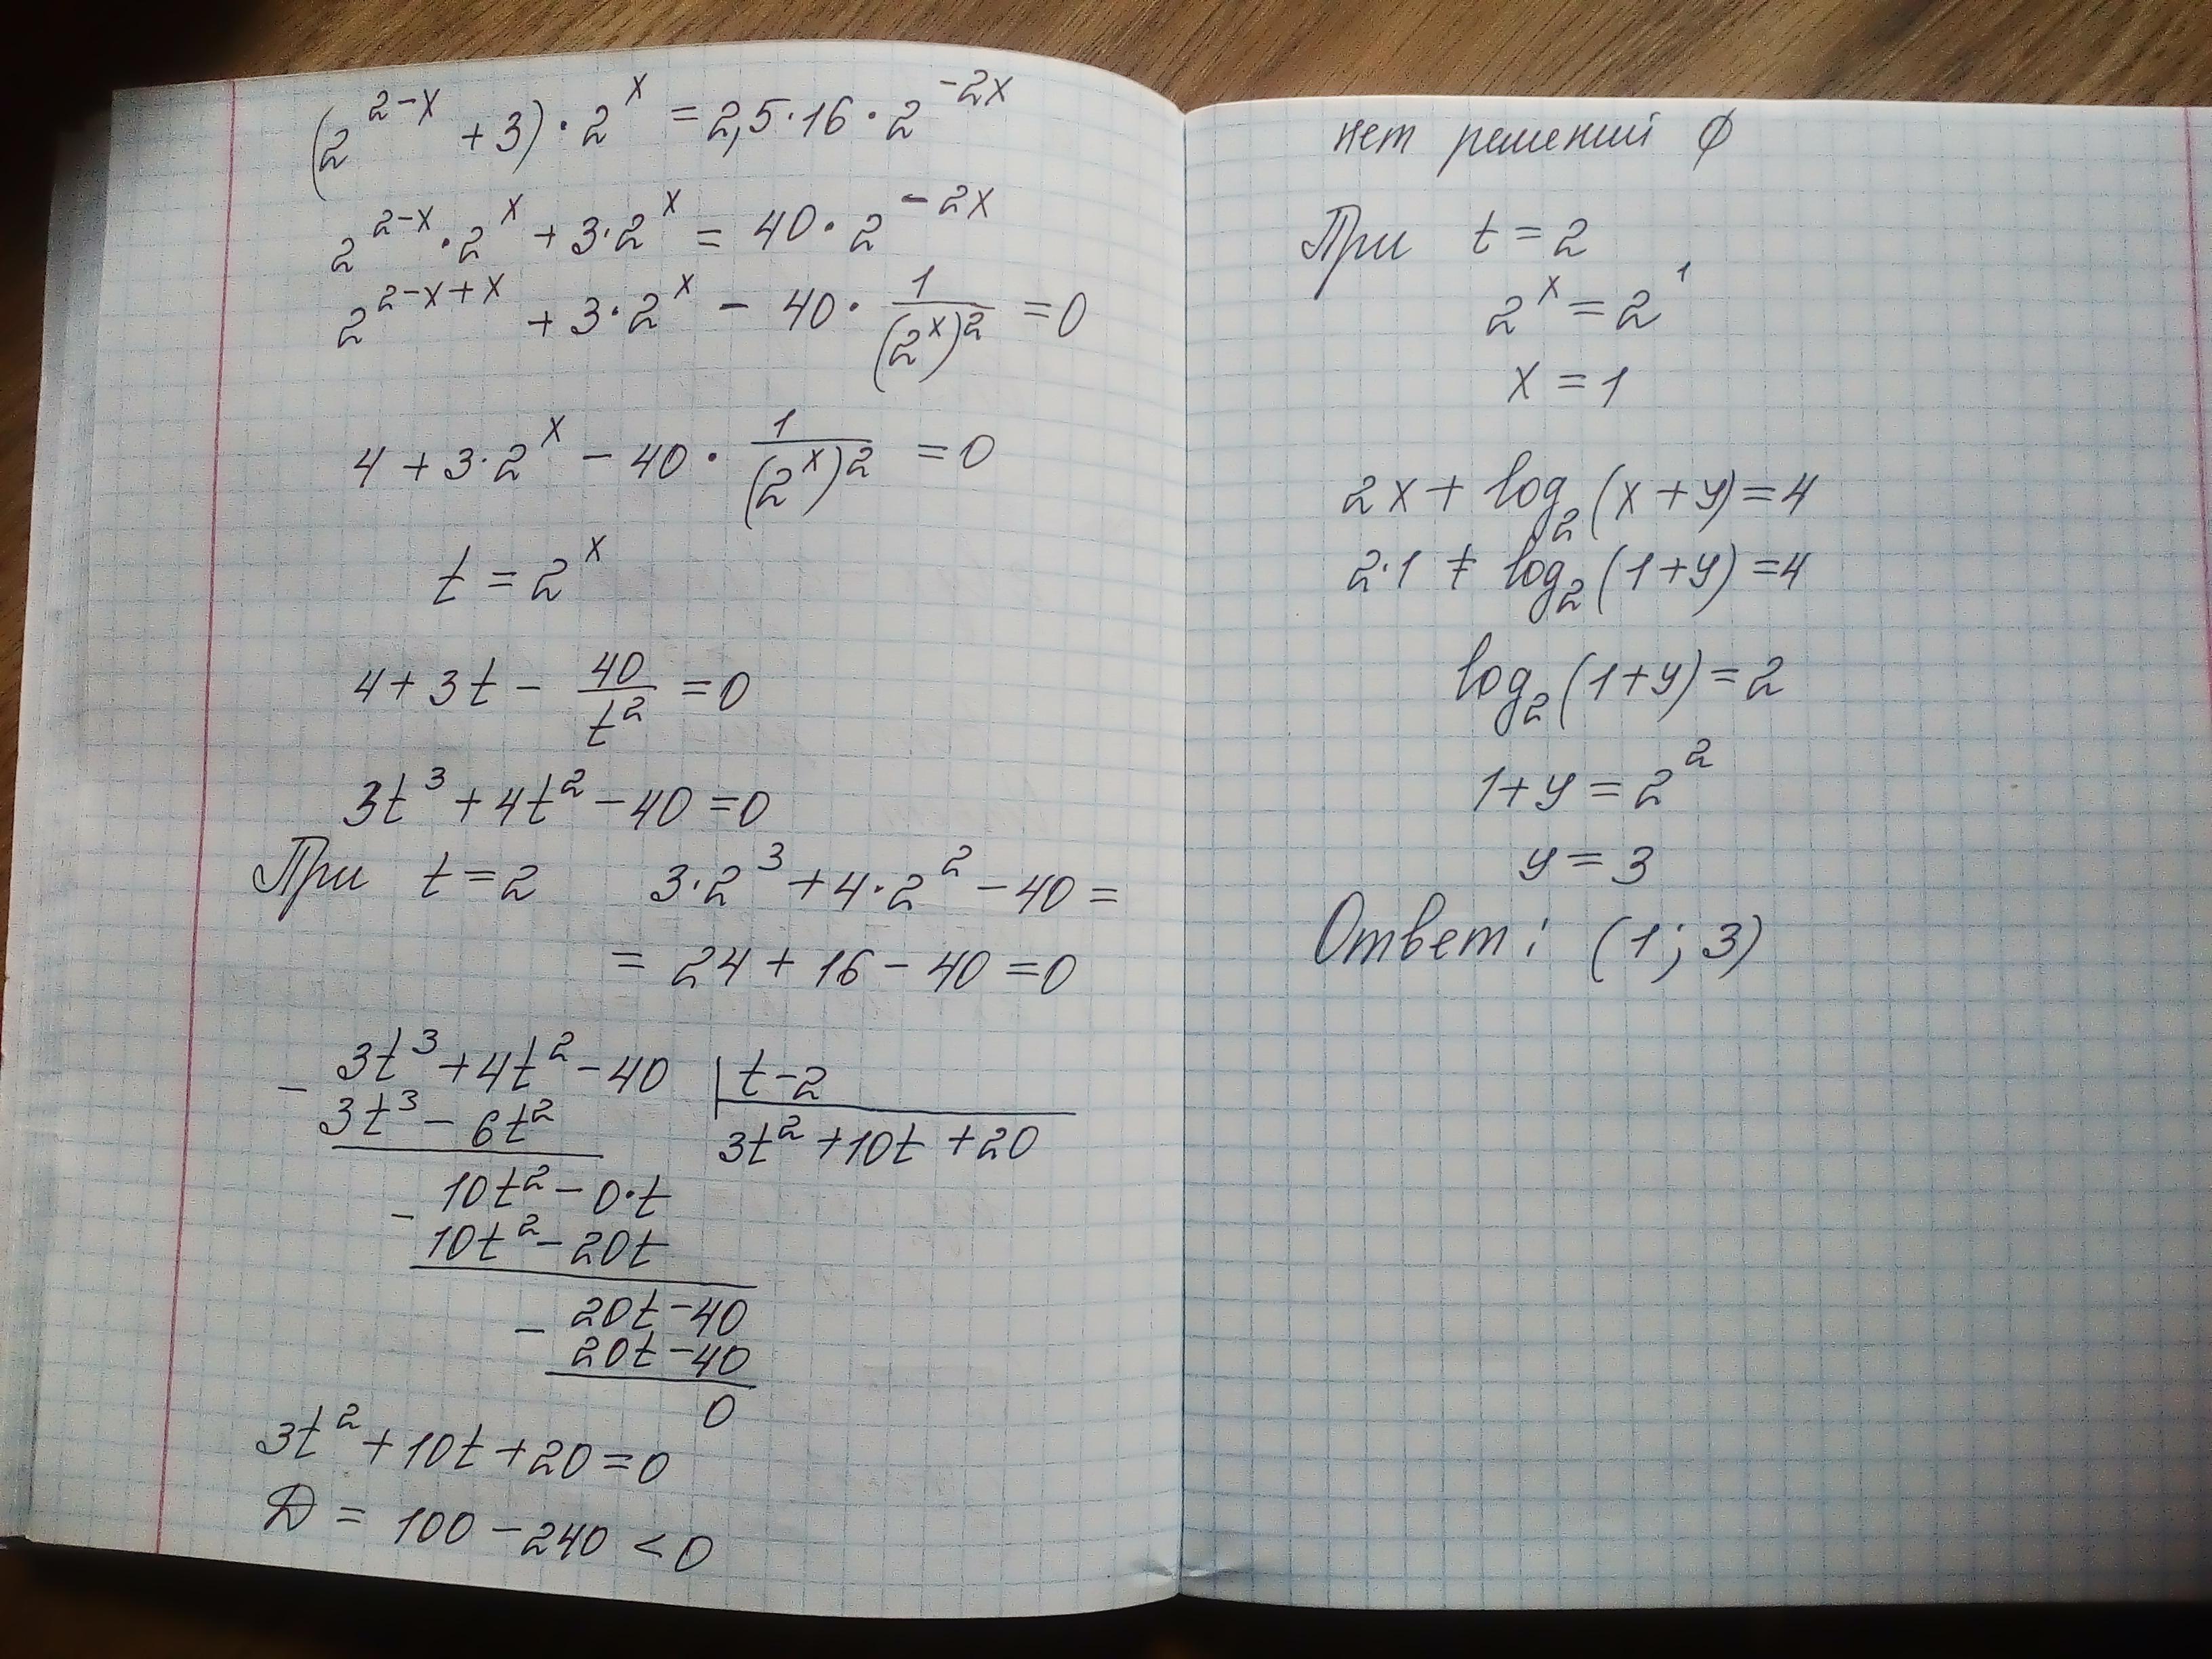 (2^{2-x} + 3) · 2^x = 2,5 · 16 · 2^{-2x}
2^{2-x} · 2^x + 3 · 2^x = 40 · 2^{-2x}
2^{2-x+x} + 3 · 2^x - 40 · \frac{1}{(2^x)^2} = 0
4 + 3 · 2^x - 40 · \frac{1}{(2^x)^2} = 0
t = 2^x
4 + 3t - \frac{40}{t^2} = 0
3t^3 + 4t^2 - 40 = 0
При t = 2 3 · 2^3 + 4 · 2^2 - 40 =
= 24 + 16 - 40 = 0
- 3t^3 + 4t^2 - 40 | t - 2
3t^3 - 6t^2 | 3t^2 + 10t + 20
- 10t^2 - 0 · t
10t^2 - 20t
- 20t - 40
20t - 40
0
3t^2 + 10t + 20 = 0
D = 100 - 240 < 0
нет решений ∅
При t = 2
2^x = 2^1
x = 1
2x + log_2 (x + y) = 4
2 · 1 + log_2 (1 + y) = 4
log_2 (1 + y) = 2
1 + y = 2^2
y = 3
Ответ: (1; 3)